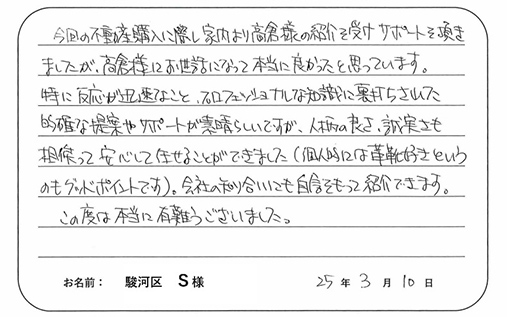 今回の不動産購入に際し家内より高倉様の紹介を受けサポートを頂き
ましたが、高倉様にお世話になって本当に良かったと思っています。
特に反応が迅速なこと、プロフェッショナルな知識に裏打ちされた
的確な提案やサポートが素晴らしいですが、人柄の良さ、誠実さも
相俟って安心して任せることができました(個人的には革靴好きという
のもグッドポイントです)。会社の知り合いにも自信をもって紹介できます。
この度は本当に有難うございました。
お名前： 駿河区 S様 25年3月10日